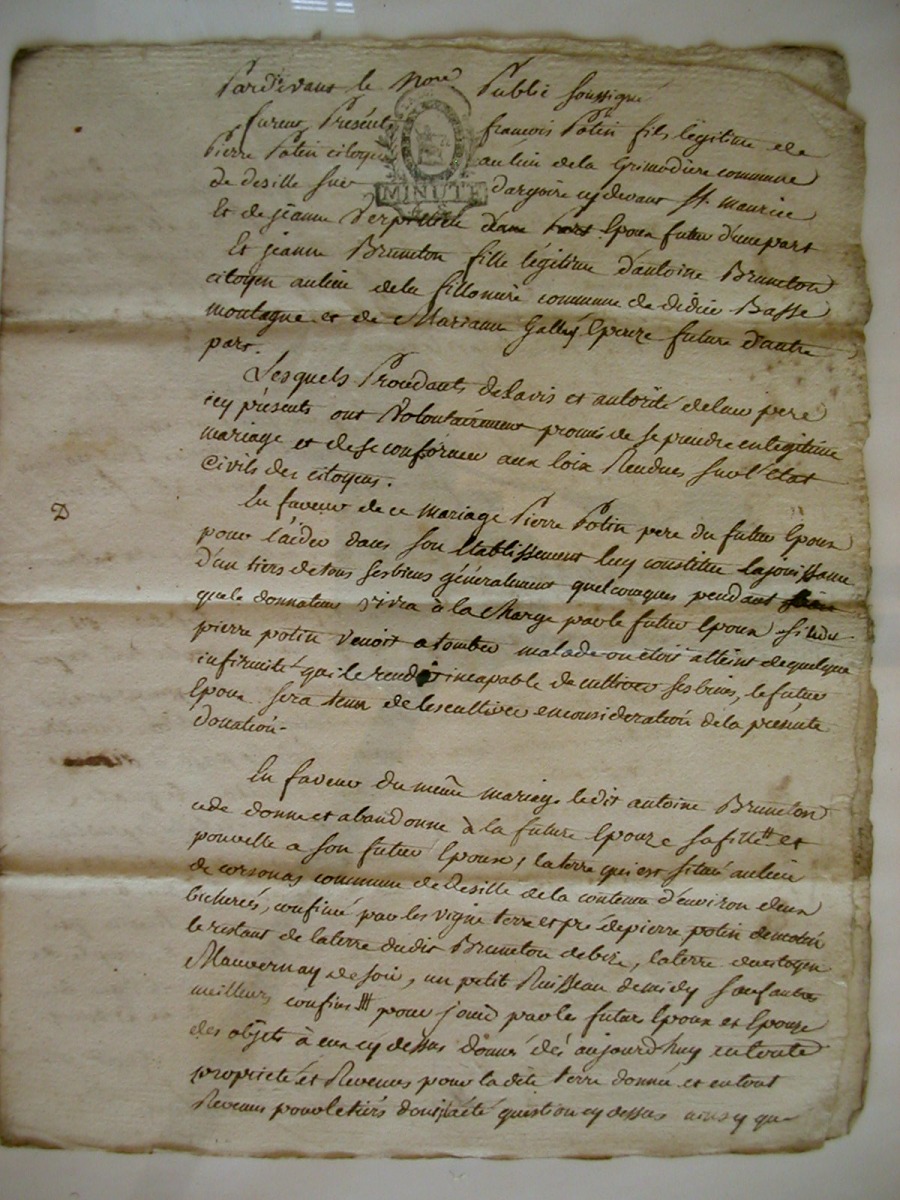 Pardevant le Nore Public soussigné
furent Présents françois Potin fils légitime de
Pierre Potin citoyen au lieu de la Grimodière commune
de desille sur dargoire cy devant St. maurice
MINUTE
Et de jeanne Epoux futur d'une part
Et jeanne Bruneton fille légitime d'antoine Bruneton
citoyen au lieu de la fillonière commune de didier Basse
montagne et de Marianne Epouze future d'autre
part.
Lesquels Procedants de lavis et autorité de leur pere
icy présents ont Volontairement promis de se prendre en legitime
mariage et de se conformer aux loix Rendues sur l'état
Civils des citoyens.
D
En faveur de ce mariage Pierre Potin pere du futur Epoux
pour l'aider dans son Etablissement luy constitue la jouissance
d'un tiers de tous ses biens généralement quelconques pendant
que le donnateur vivra à la charge par le futur Epoux si ledit
pierre potin venoit a tomber malade ou étoit atteint de quelque
infirmité qui le rendit incapable de cultiver ses biens, le futur
Epoux sera tenu de les cultiver en consideration de la présente
donation.
En faveur du même mariage ledit antoine Bruneton
cede donne et abandonne à la future Epouze sa fille et
pour elle a son futur Epoux, la terre qui est situé au lieu
de corsonas commune de desille de la contenu d'environ deux
bicherés, confiné par les vigne terre et pré de pierre potin de matin
le restant de la terre dudit Bruneton de bize, la terre du citoyen
Mauvernay de soir, un petit Ruisseau de midy sauf autres
meilleurs confins pour jouir par le futur Epoux et Epouze
des objets à eux cy dessus donné dès aujourd'huy en toute
propriété et Revenus pour la dite terre donné et en tout
Revenus pour le tiers dont a été question cy dessus ainsy que